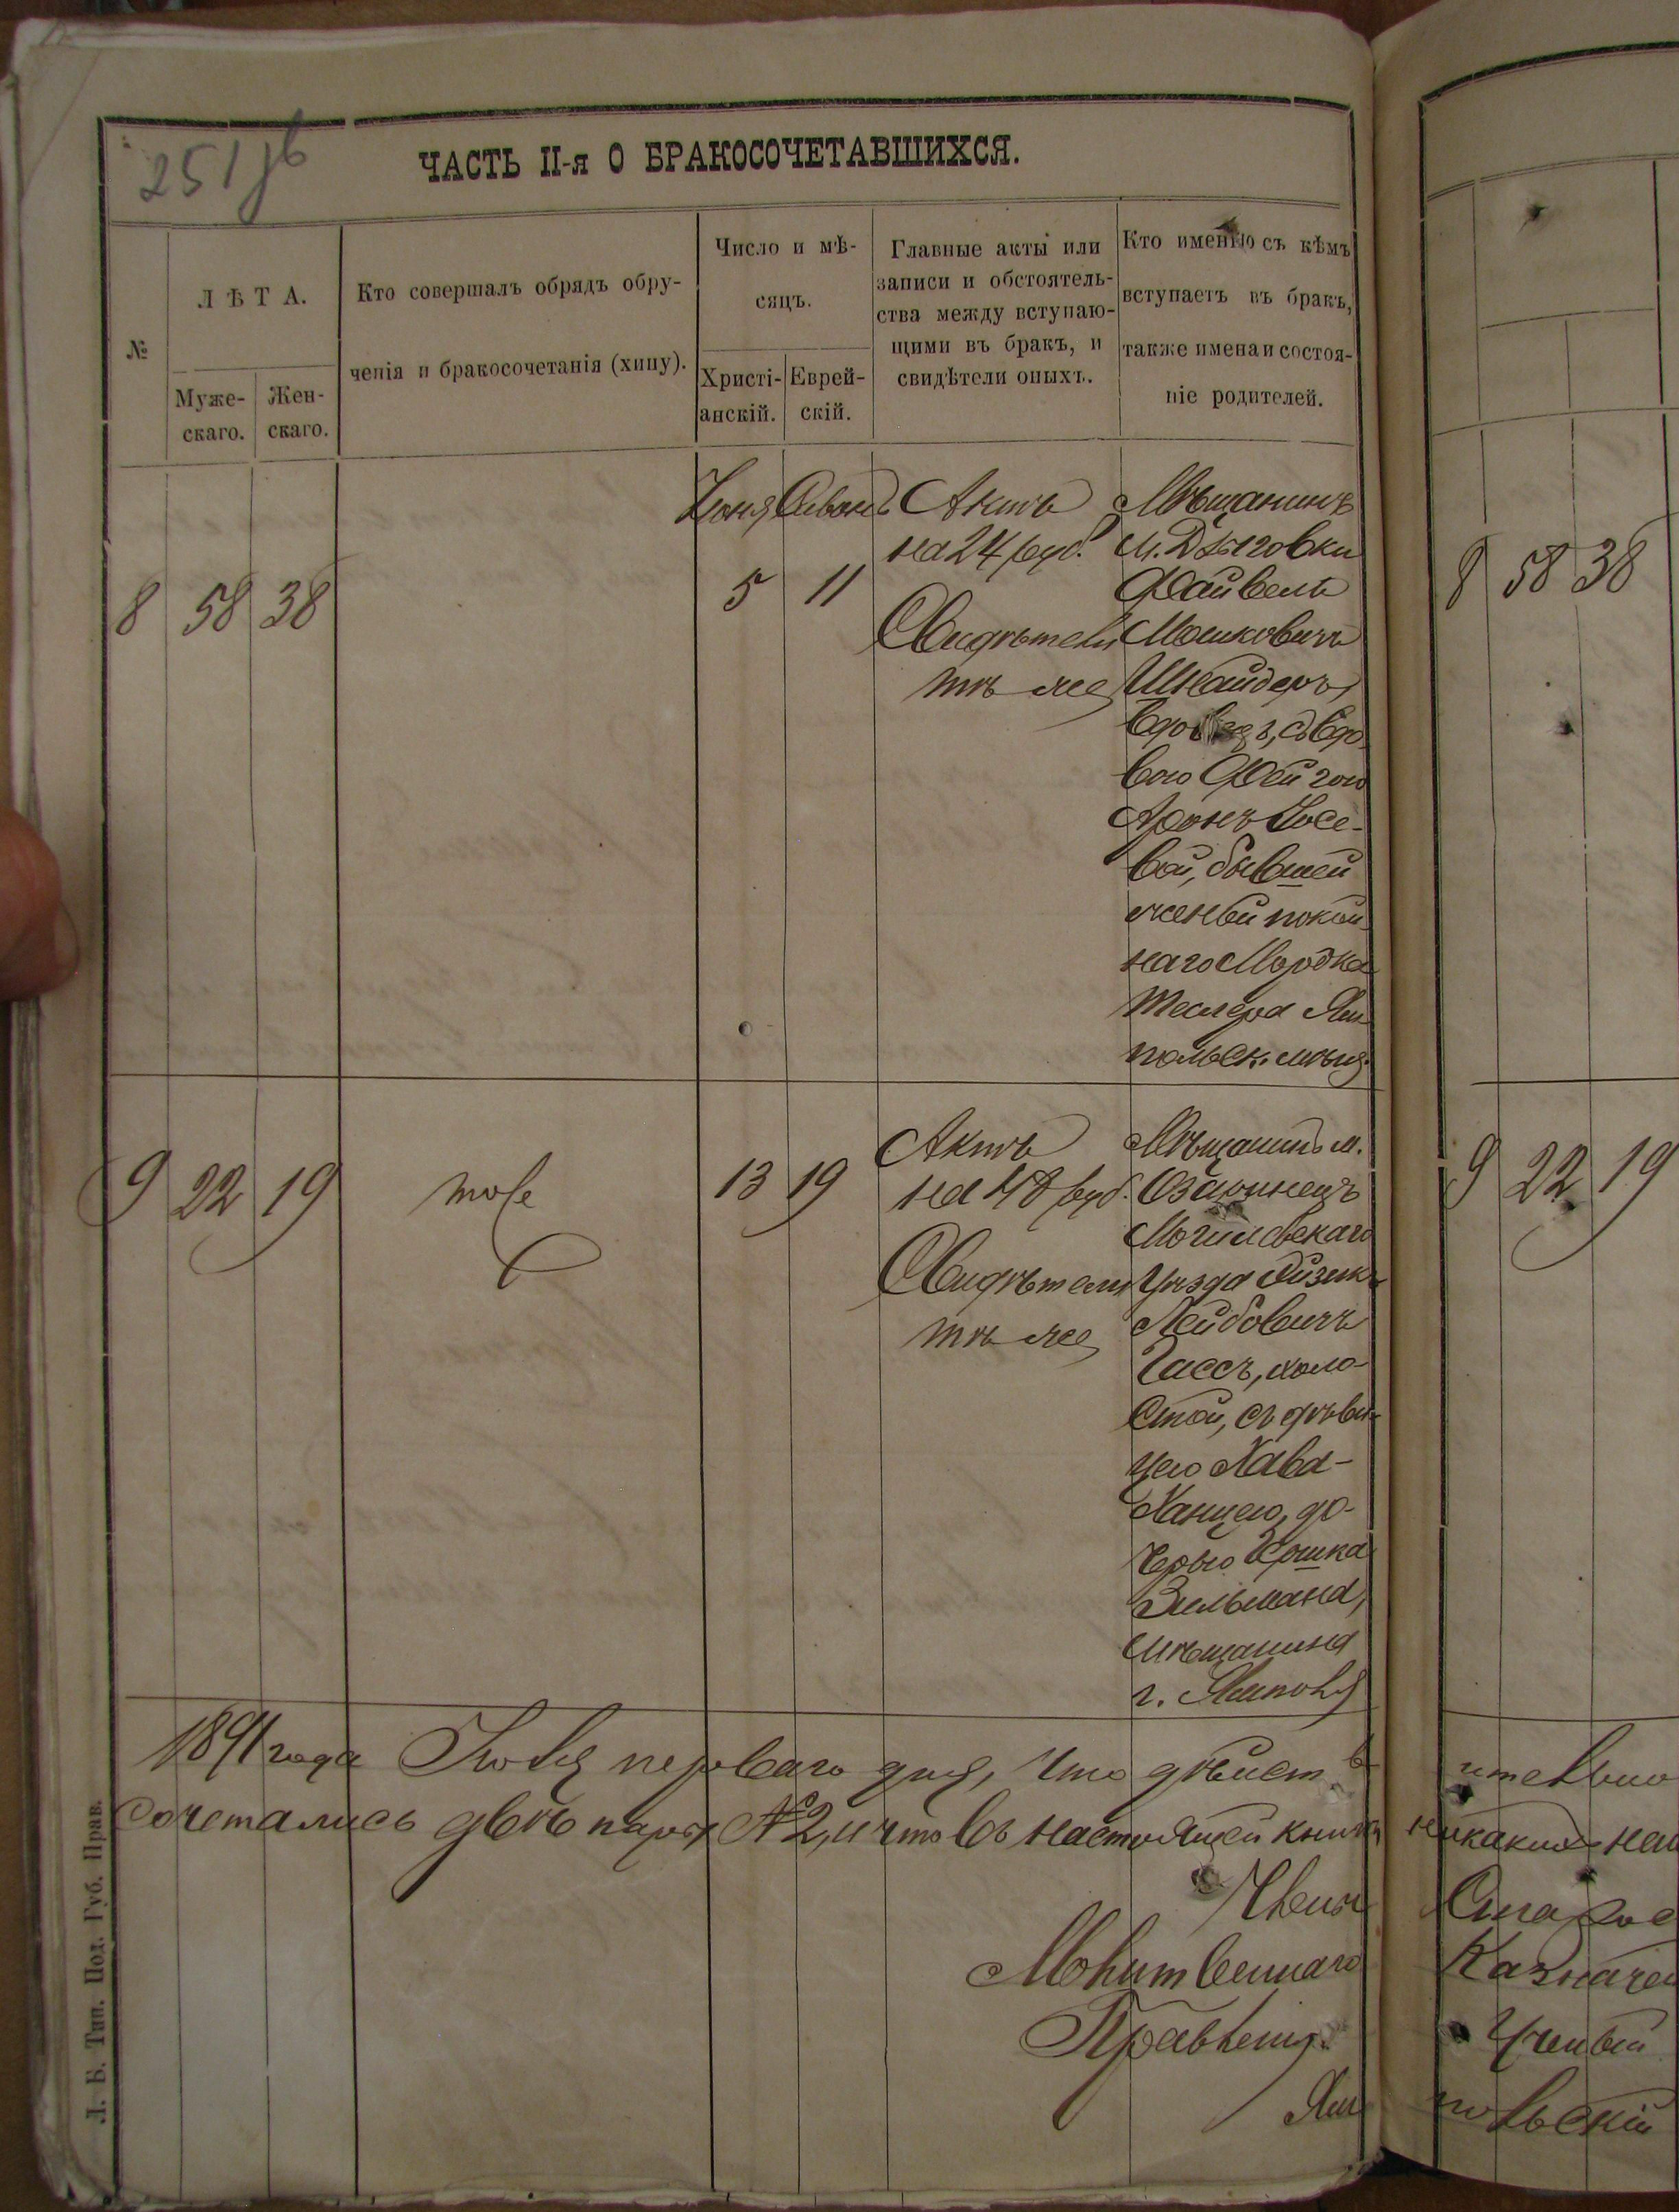 251 об
ЧАСТЬ II-я О БРАКОСОЧЕТАВШИХСЯ.
№
ЛѢТА.
Муже-
скаго.
Жен-
скаго.
Кто совершалъ обрядъ обру-
ченія и бракосочетанія (хипу).
Число и мѣ-
сяцъ.
Христі-
анскій.
Еврей-
скій.
Главные акты или
записи и обстоятель-
ства между вступаю-
щими въ бракъ, и
свидѣтели оныхъ.
Кто именно съ кѣмъ
вступаетъ въ бракъ,
также имена и состоя-
ніе родителей.
8 58 38
Іюня Сивонъ
5 11
Актъ
на 24 руб.
Свидѣтели
тѣ же
Мѣщанинъ
м. Дзыговки
Файвель
Мошковичъ
Шнайдеръ,
вдовецъ, съ вдо
вою Фейгою
Аронъ Іосе-
вой, бывшей
женой покой
наго Мордка
Теслера Ям
польск. мѣщ.
9 22 19
тоже
13 19
Актъ
на 48 руб.
Свидѣтели
тѣ же
Мѣщанинъ м.
Озаринецъ
Могилевскаго
уѣзда Айзикъ
Лейбовичъ
Гассъ, холо-
стой, съ дѣви-
цею Хава-
Ханцею, до-
черью Гершка
Зильмана,
мѣщанина
г. Ямполя
8 58 38
9 22 19
1891 года Іюля перваго дня, что дѣйств ительно
сочетались двѣ пары № 2, и что въ настоящей книги никакихъ
Члены
Молитвеннаго
Правленія.
Старос
Казначей
Ученый
Ям польскій
Л. Б. Тип. Под. Губ. Прав.